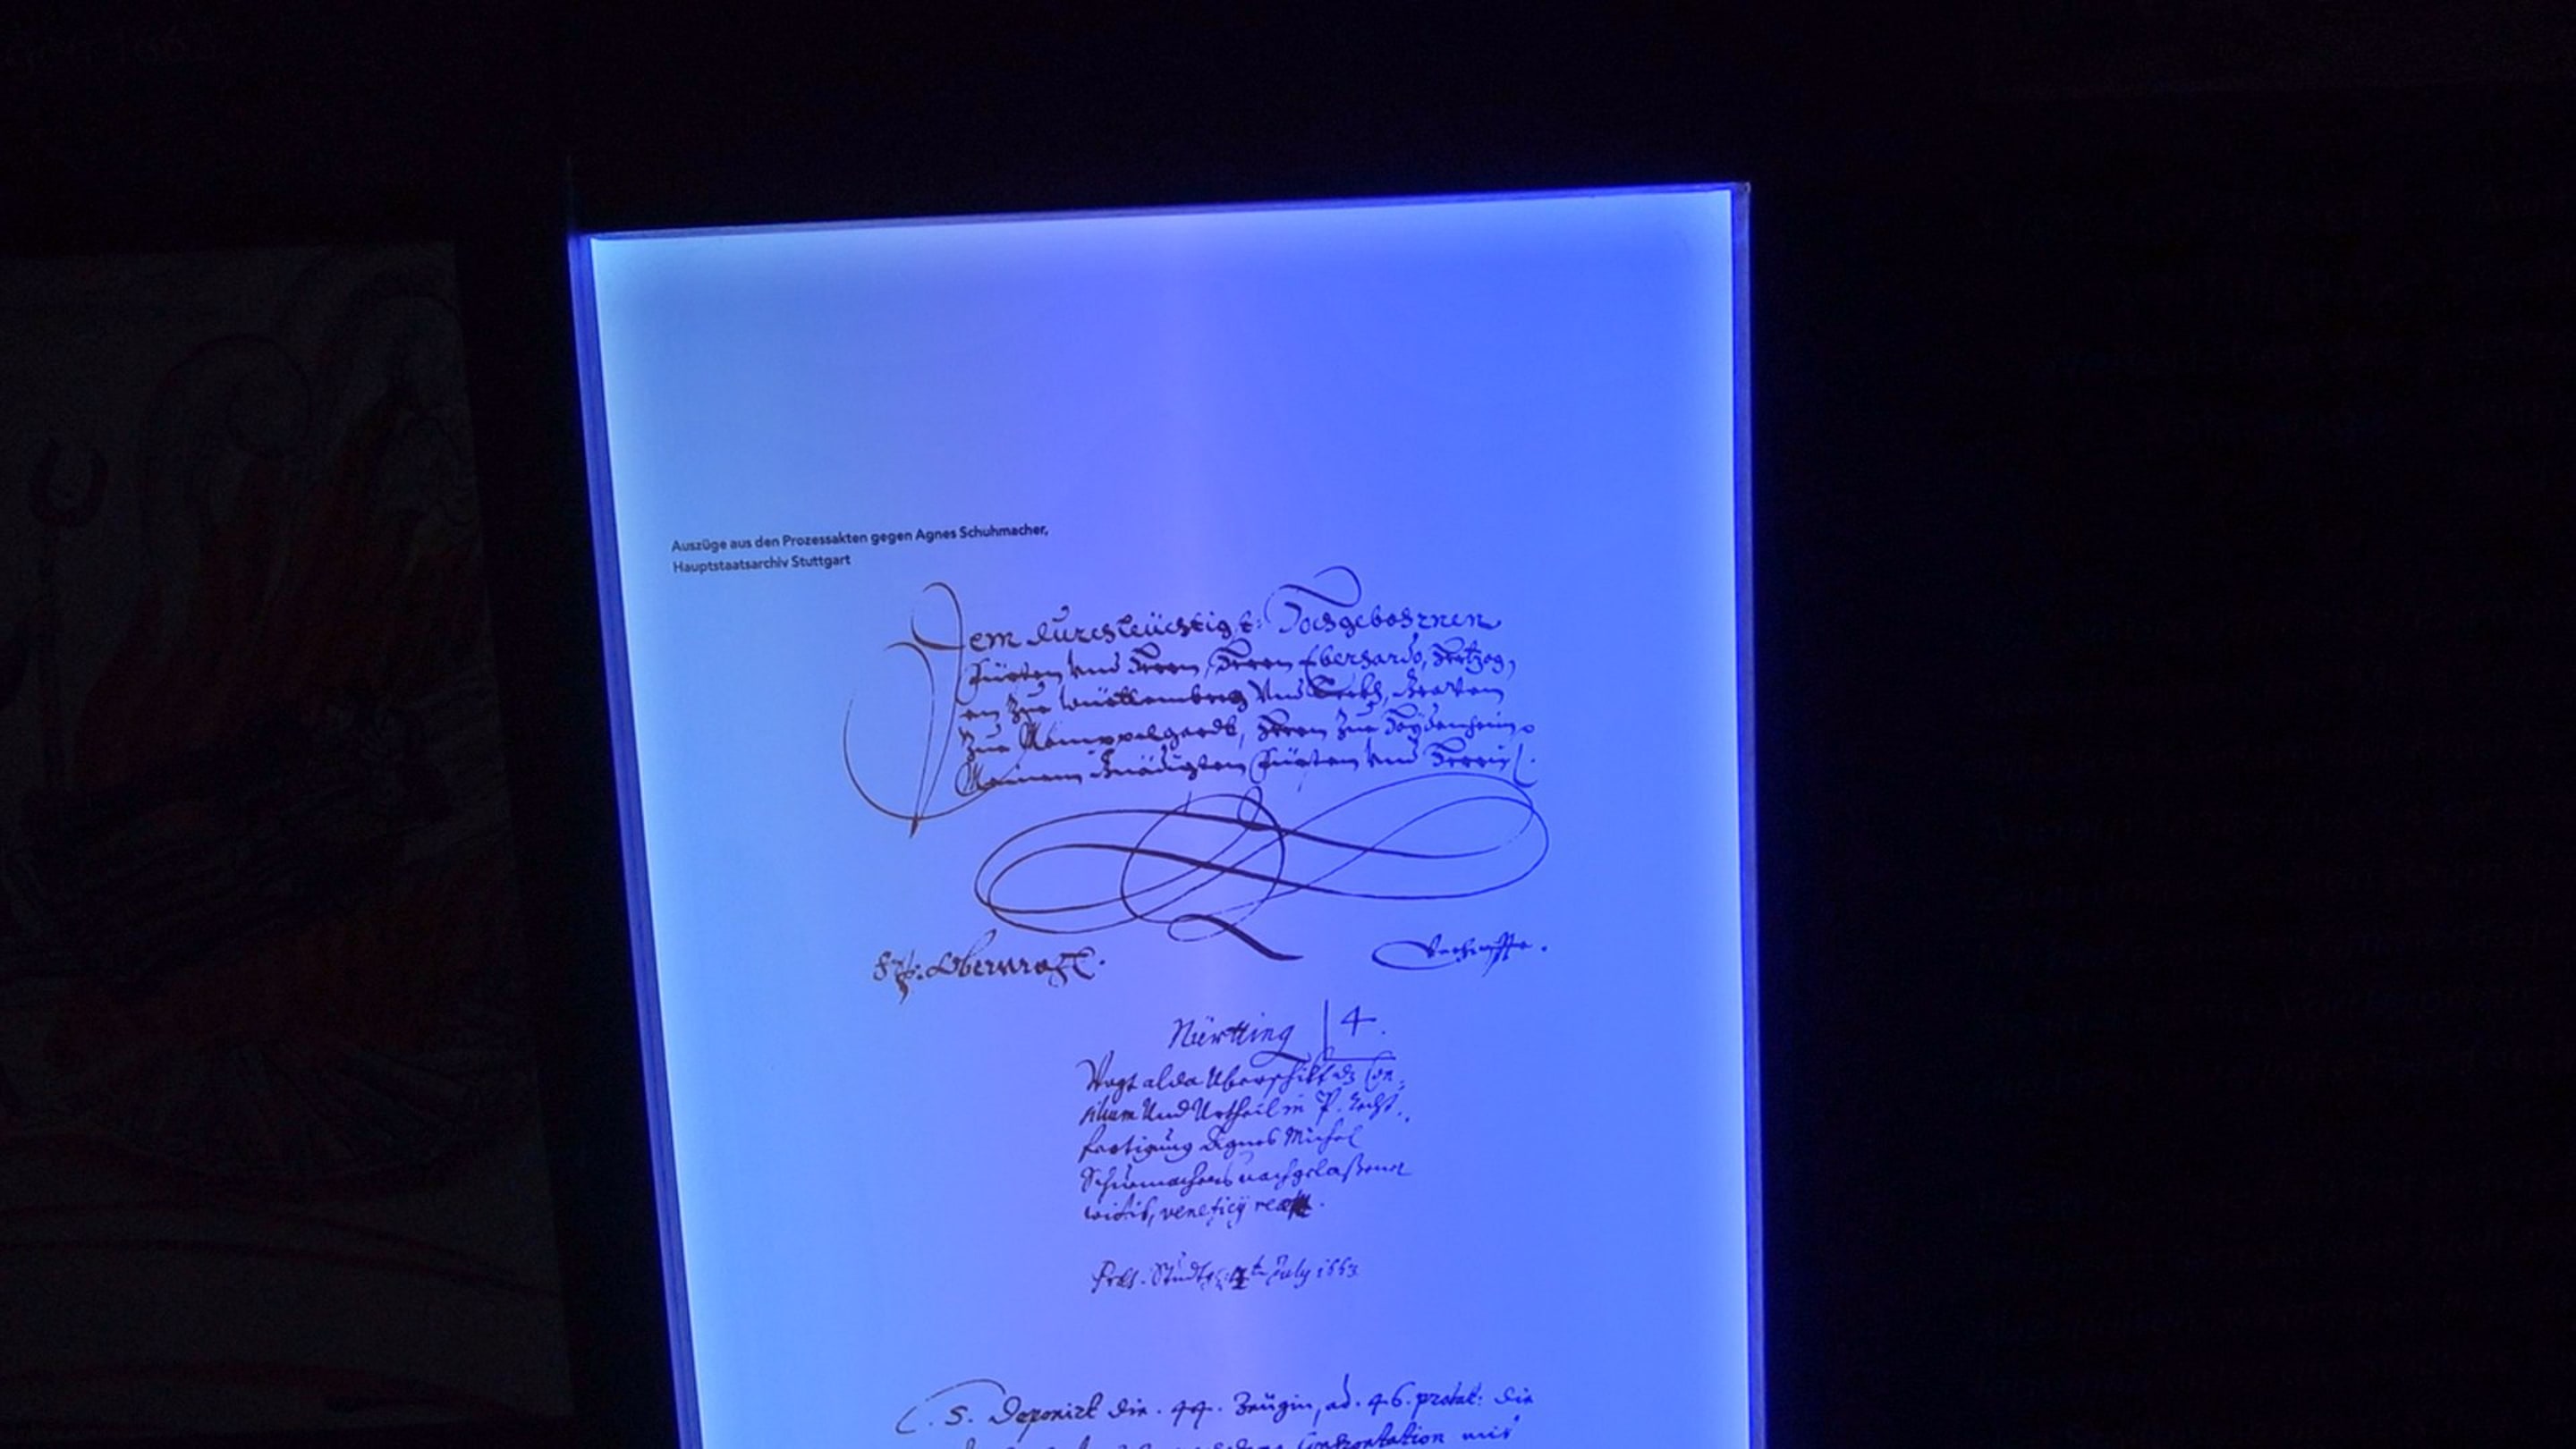 Auszüge aus den Prozessakten gegen Agnes Schuhmacher,
Hauptstaatsarchiv Stuttgart
Dem durchleüchtig: Hochgebohrnen
Fürsten und Herrn, Herrn Eberhardo, Hertzog,
en zue Württemberg und Teckh, Graven
zue Mömppelgardt, Herrn zue Heydenheim
Meinem Gnädigsten Fürsten und Herrn
Nürtting 4.
Vogt alda überschikt dz Con,
silium und Urtheil in P. Recht,
fertigung Agnes Michel
Schuemachers nachgelaßener
witib, veneficij
July 1663
C. S. Deponirt die 44. Zeügin, ad. 46. probat: die
Confrontation mit